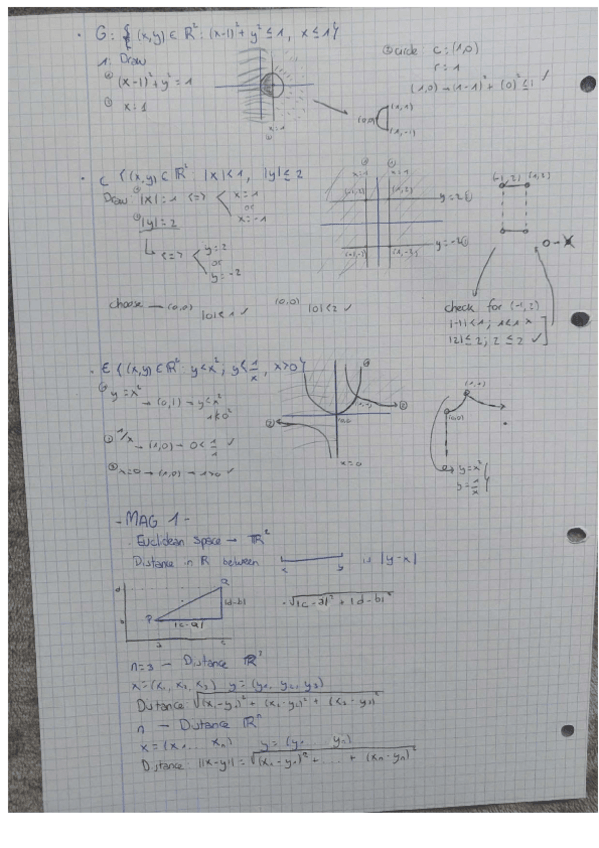 G: {(x,y) ∈ ℝ²: (x-1)² + y² ≤ 1, x ≤ 1}
1. Draw
① (x-1)² + y² = 1
② x = 1
x=1
① circle: c: (1,0)
r = 1
(1,0) → (1-1)² + (0)² ≤ 1 ✓
(1,1)
(0,0)
(1,-1)
C {(x,y) ∈ ℝ²: |x| < 1, |y| ≤ 2
Draw ① |x| = 1 <=> x = 1
or
x = -1
② |y| = 2
<=> y = 2
or
y = -2
x=-1 x=1
(-1,2) (1,2) y=2
(-1,-2) (1,-2) y=-2
(-1,2) (1,2)
choose → (0,0) |0| < 1 ✓ (0,0) |0| < 2 ✓
check for (-1,2)
|-1| < 1; 1 < 1 ×
|2| ≤ 2; 2 ≤ 2 ✓
E {(x,y) ∈ ℝ²: y < x²; y ≤ 1/x, x > 0}
① y = x²
→ (0,1) → y < x²
1 < 0²
② 1/x → (1,0) → 0 < 1/1 ✓
③ x=0 → (1,0) → 1 > 0 ✓
(1,1)
(0,0)
x=0
(1,1)
(0,0)
y = x²
y = 1/x
- MAG 1 -
· Euclidean Space → ℝ²
Distance in R between x y is |y-x|
d Q
b P |c-a| |d-b|
a c
√|c-a|² + |d-b|²
n=3 → Distance ℝ³
x = (x₁, x₂, x₃) y = (y₁, y₂, y₃)
Distance: √(x₁-y₁)² + (x₂-y₂)² + (x₃-y₃)²
n → Distance ℝⁿ
x = (x₁ ... xₙ) y = (y₁ ... yₙ)
Distance: ||x-y|| = √(x₁-y₁)² + ... + (xₙ-yₙ)²